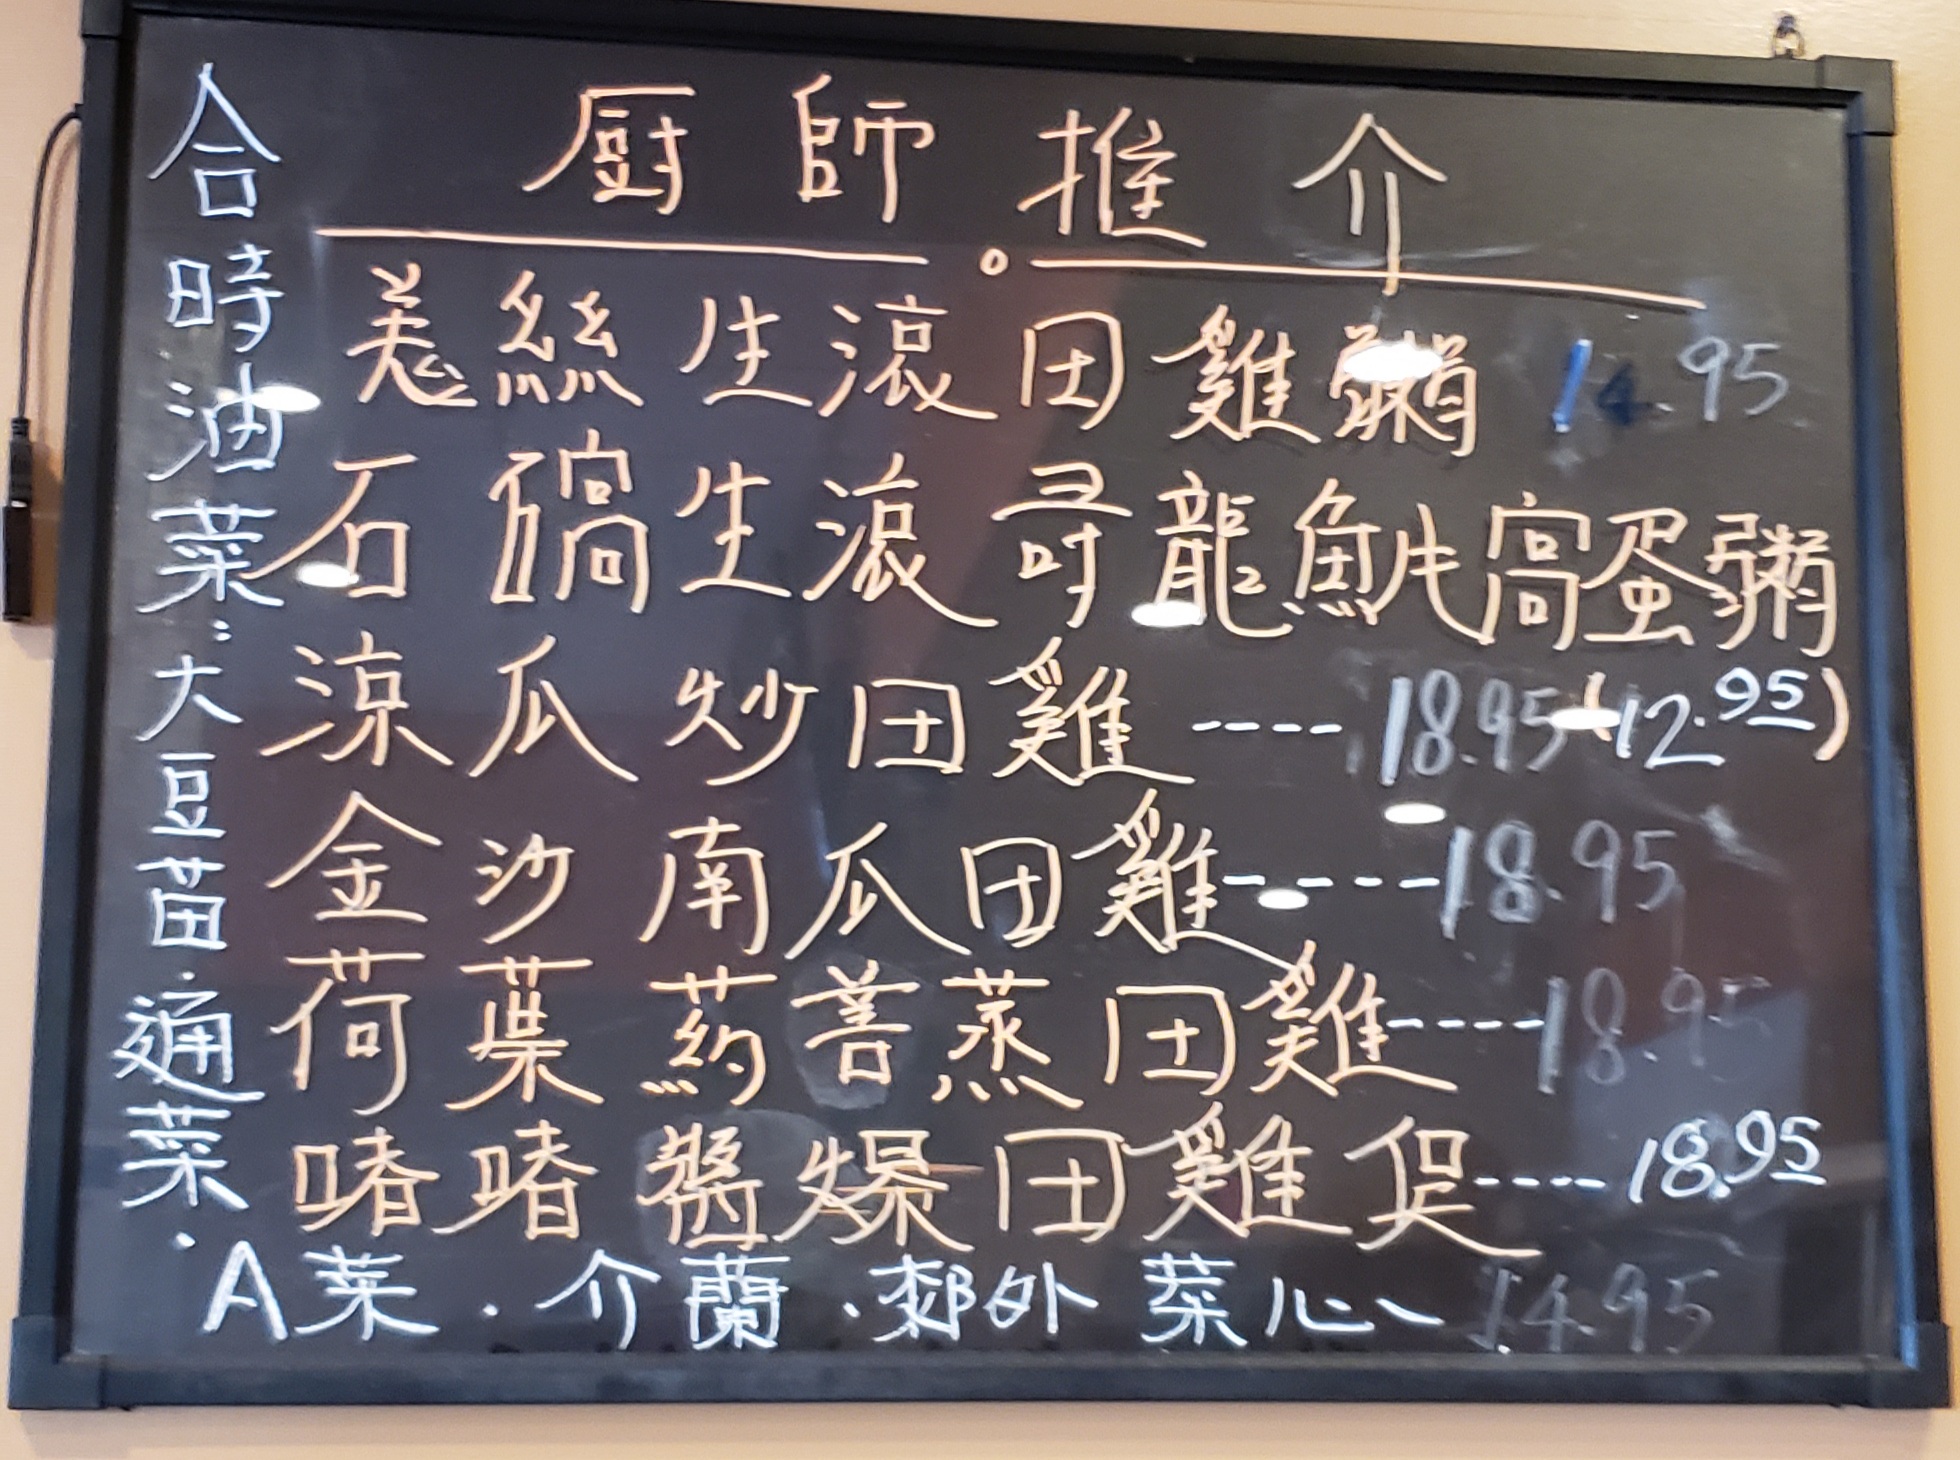 厨師推介
姜絲生滾田雞粥 14.95
石窩生滾哥龍魚片窩蛋粥
(12.95)
涼瓜炒田雞 ---- 18.95
金沙南瓜田雞 ----- 18.95
荷葉药善蒸田雞 ---- 18.95
啫啫醬爆田雞促 ---- 18.95
合時油菜：大豆苗．通菜．
A菜．介蘭．郊外菜心 14.95